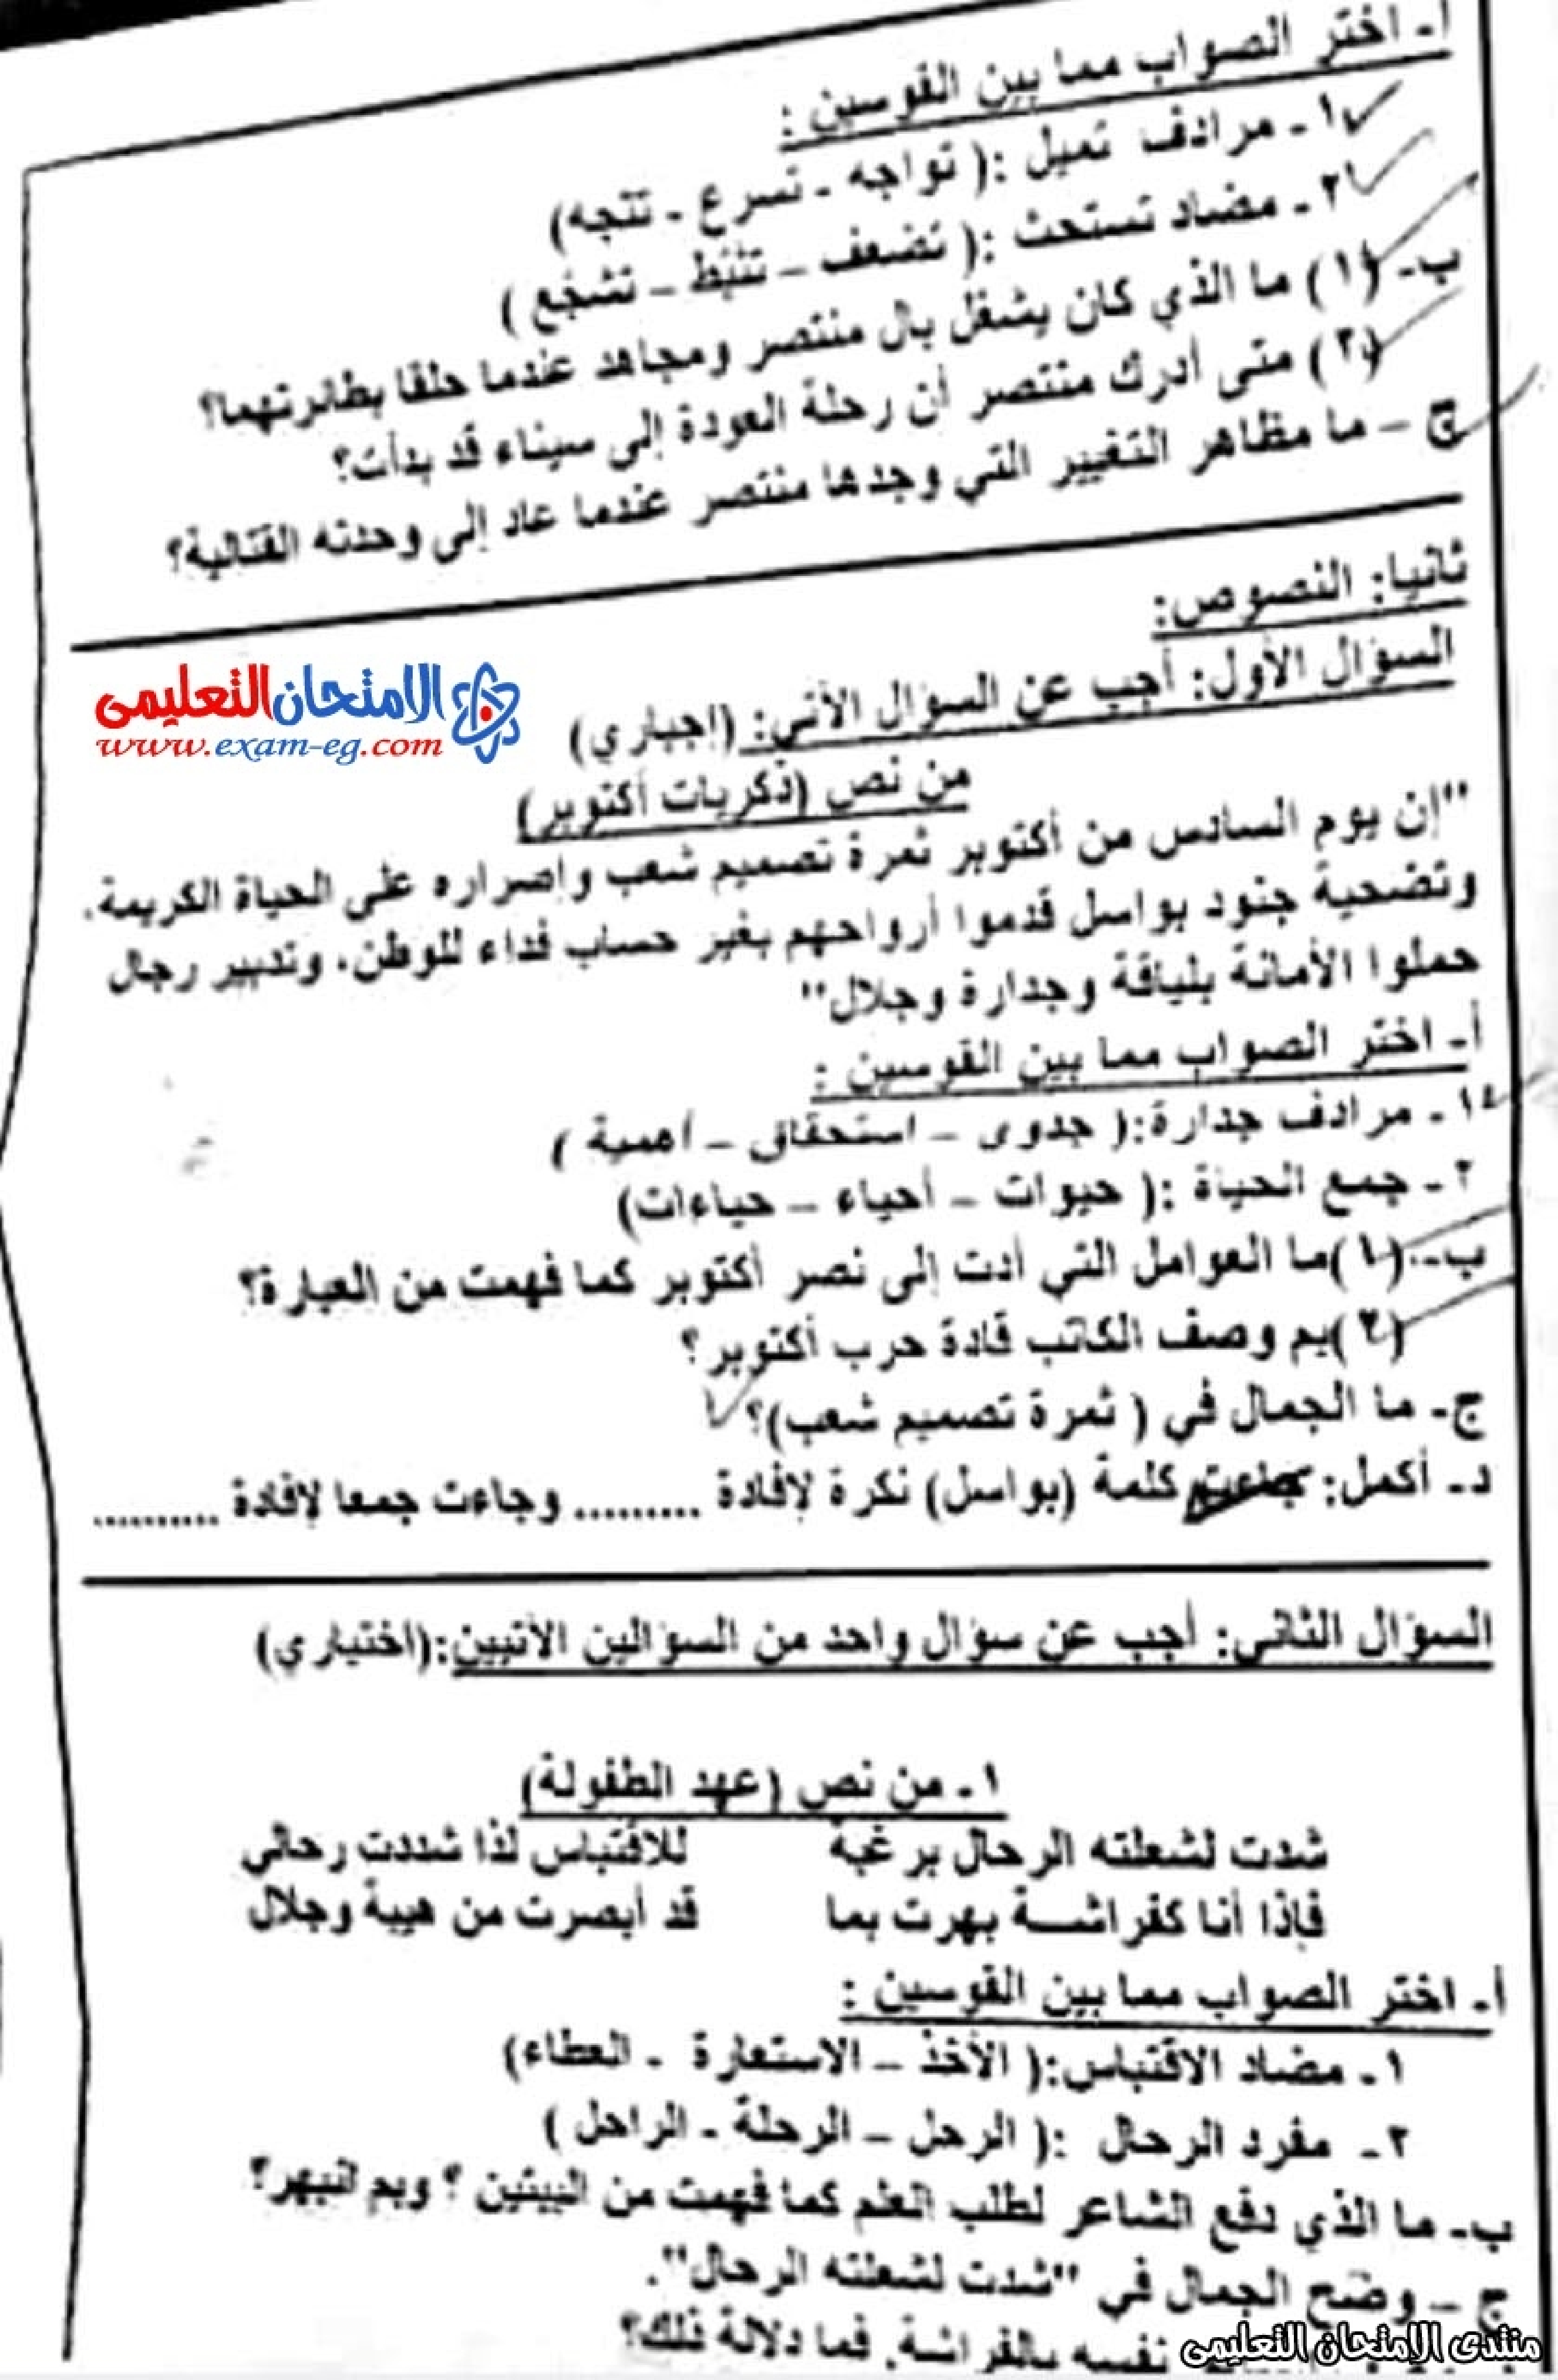 أ- اختر الصواب مما بين القوسين :
١- مرادف تميل :( تواجه - تسرع - تتجه)
٢- مضاد تستحث :( تضعف – تثبط – تشجع )
ب- (١) ما الذي كان يشغل بال منتصر ومجاهد عندما حلقا بطائرتهما؟
(٢) متى أدرك منتصر أن رحلة العودة إلى سيناء قد بدأت؟
ج – ما مظاهر التغيير التي وجدها منتصر عندما عاد إلى وحدته القتالية؟
ثانيا: النصوص:
السؤال الأول: أجب عن السؤال الآتي: (إجباري)
الامتحان التعليمى
www.exam-eg.com
من نص (ذكريات أكتوبر)
"إن يوم السادس من أكتوبر ثمرة تصميم شعب وإصراره على الحياة الكريمة،
وتضحية جنود بواسل قدموا أرواحهم بغير حساب فداء للوطن، وتدبير رجال
حملوا الأمانة بلياقة وجدارة وجلال"
أ- اختر الصواب مما بين القوسين :
١- مرادف جدارة:( جدوى – استحقاق – أهمية )
٢- جمع الحياة :( حيوات – أحياء – حياءات)
ب- (١)ما العوامل التي أدت إلى نصر أكتوبر كما فهمت من العبارة؟
(٢)بم وصف الكاتب قادة حرب أكتوبر؟
ج- ما الجمال في ( ثمرة تصميم شعب)؟
د- أكمل: جاءت كلمة (بواسل) نكرة لإفادة ......... وجاءت جمعا لإفادة ..........
السؤال الثاني: أجب عن سؤال واحد من السؤالين الآتيين:(اختياري)
١- من نص (عهد الطفولة)
شدت لشعلته الرحال برغبة للاقتباس لذا شددت رحالي
فإذا أنا كفراشـــة بهرت بما قد أبصرت من هيبة وجلال
أ- اختر الصواب مما بين القوسين :
١- مضاد الاقتباس:( الأخذ – الاستعارة - العطاء)
٢- مفرد الرحال :( الرحل – الرحلة - الراحل )
ب- ما الذي دفع الشاعر لطلب العلم كما فهمت من البيتين ؟ وبم انبهر؟
ج – وضح الجمال في "شدت لشعلته الرحال".
نفسه بالفراشة، فما دلالة ذلك؟
منتدى الامتحان التعليمى